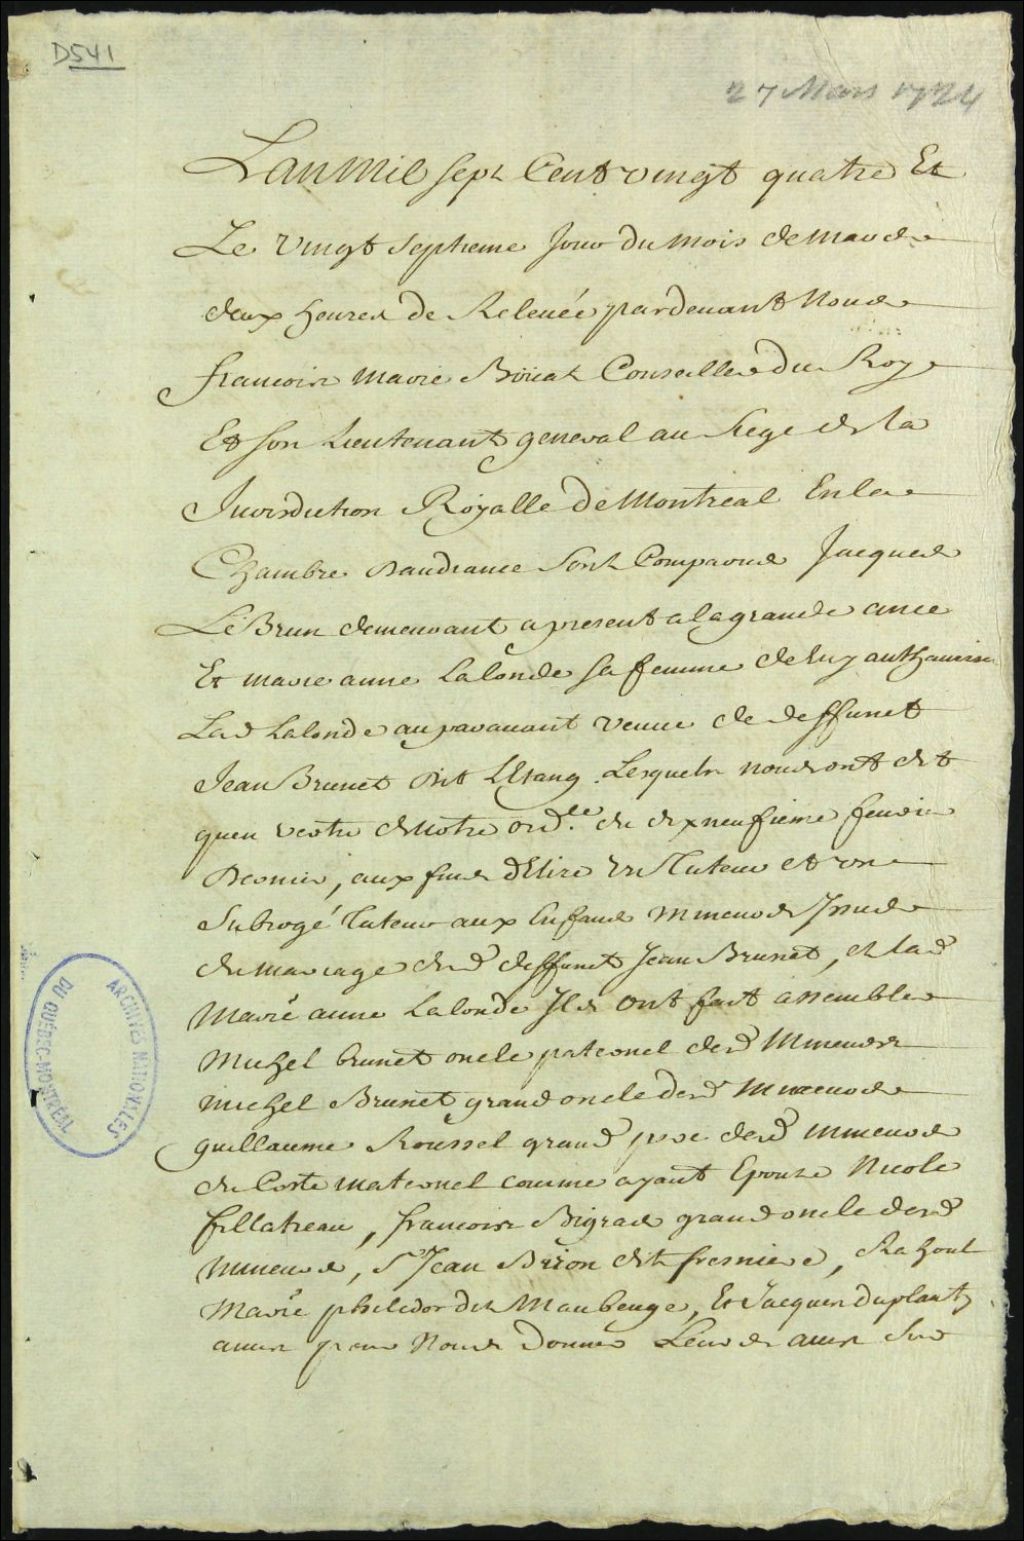 D541
27 Mars 1724
Lan mil sept Cent vingt quatre Et
Le vingt septieme Jour du mois de mars
deux heures de Relevée pardevant Nous
francois Marie Boüat Conseiller du Roy
Et son Lieutenant general au siege de la
Jurisdiction Royalle de Montreal En la
Chambre daudiance Sont Comparus Jacques
Le Brun demeurant apresent a la grande ance
Et marie anne Lalonde sa femme de luy authorisée
Lad Lalonde auparavant veuve de deffunct
Jean Brunet dit LEtang. Lesquels nous ont dit
quen vertu de Notre ord.ce du dix neufieme fevrier
Dernier, aux fins dElire un Tuteur et un
Subrogé Tuteur aux Enfans Mineurs Issus
du mariage dud deffunct Jean Brunet, et lad
Marie anne Lalonde Ils ont fait assembler
Michel brunet oncle paternel desd Mineurs
michel Brunet grand oncle desd mineurs
guillaume Roussel grand pere desd mineurs
du Costé maternel comme ayant Epousé Nicole
fillatreau, francois Bigras grand oncle desd
mineurs, Sr Jean Brion dit fresniere,
Marie philedor dit Maubeuge, Et Jacques Duplanty
amis pour Nous Donner Leurs avis sur
ARCHIVES NATIONALES
DU QUÉBEC-MONTRÉAL